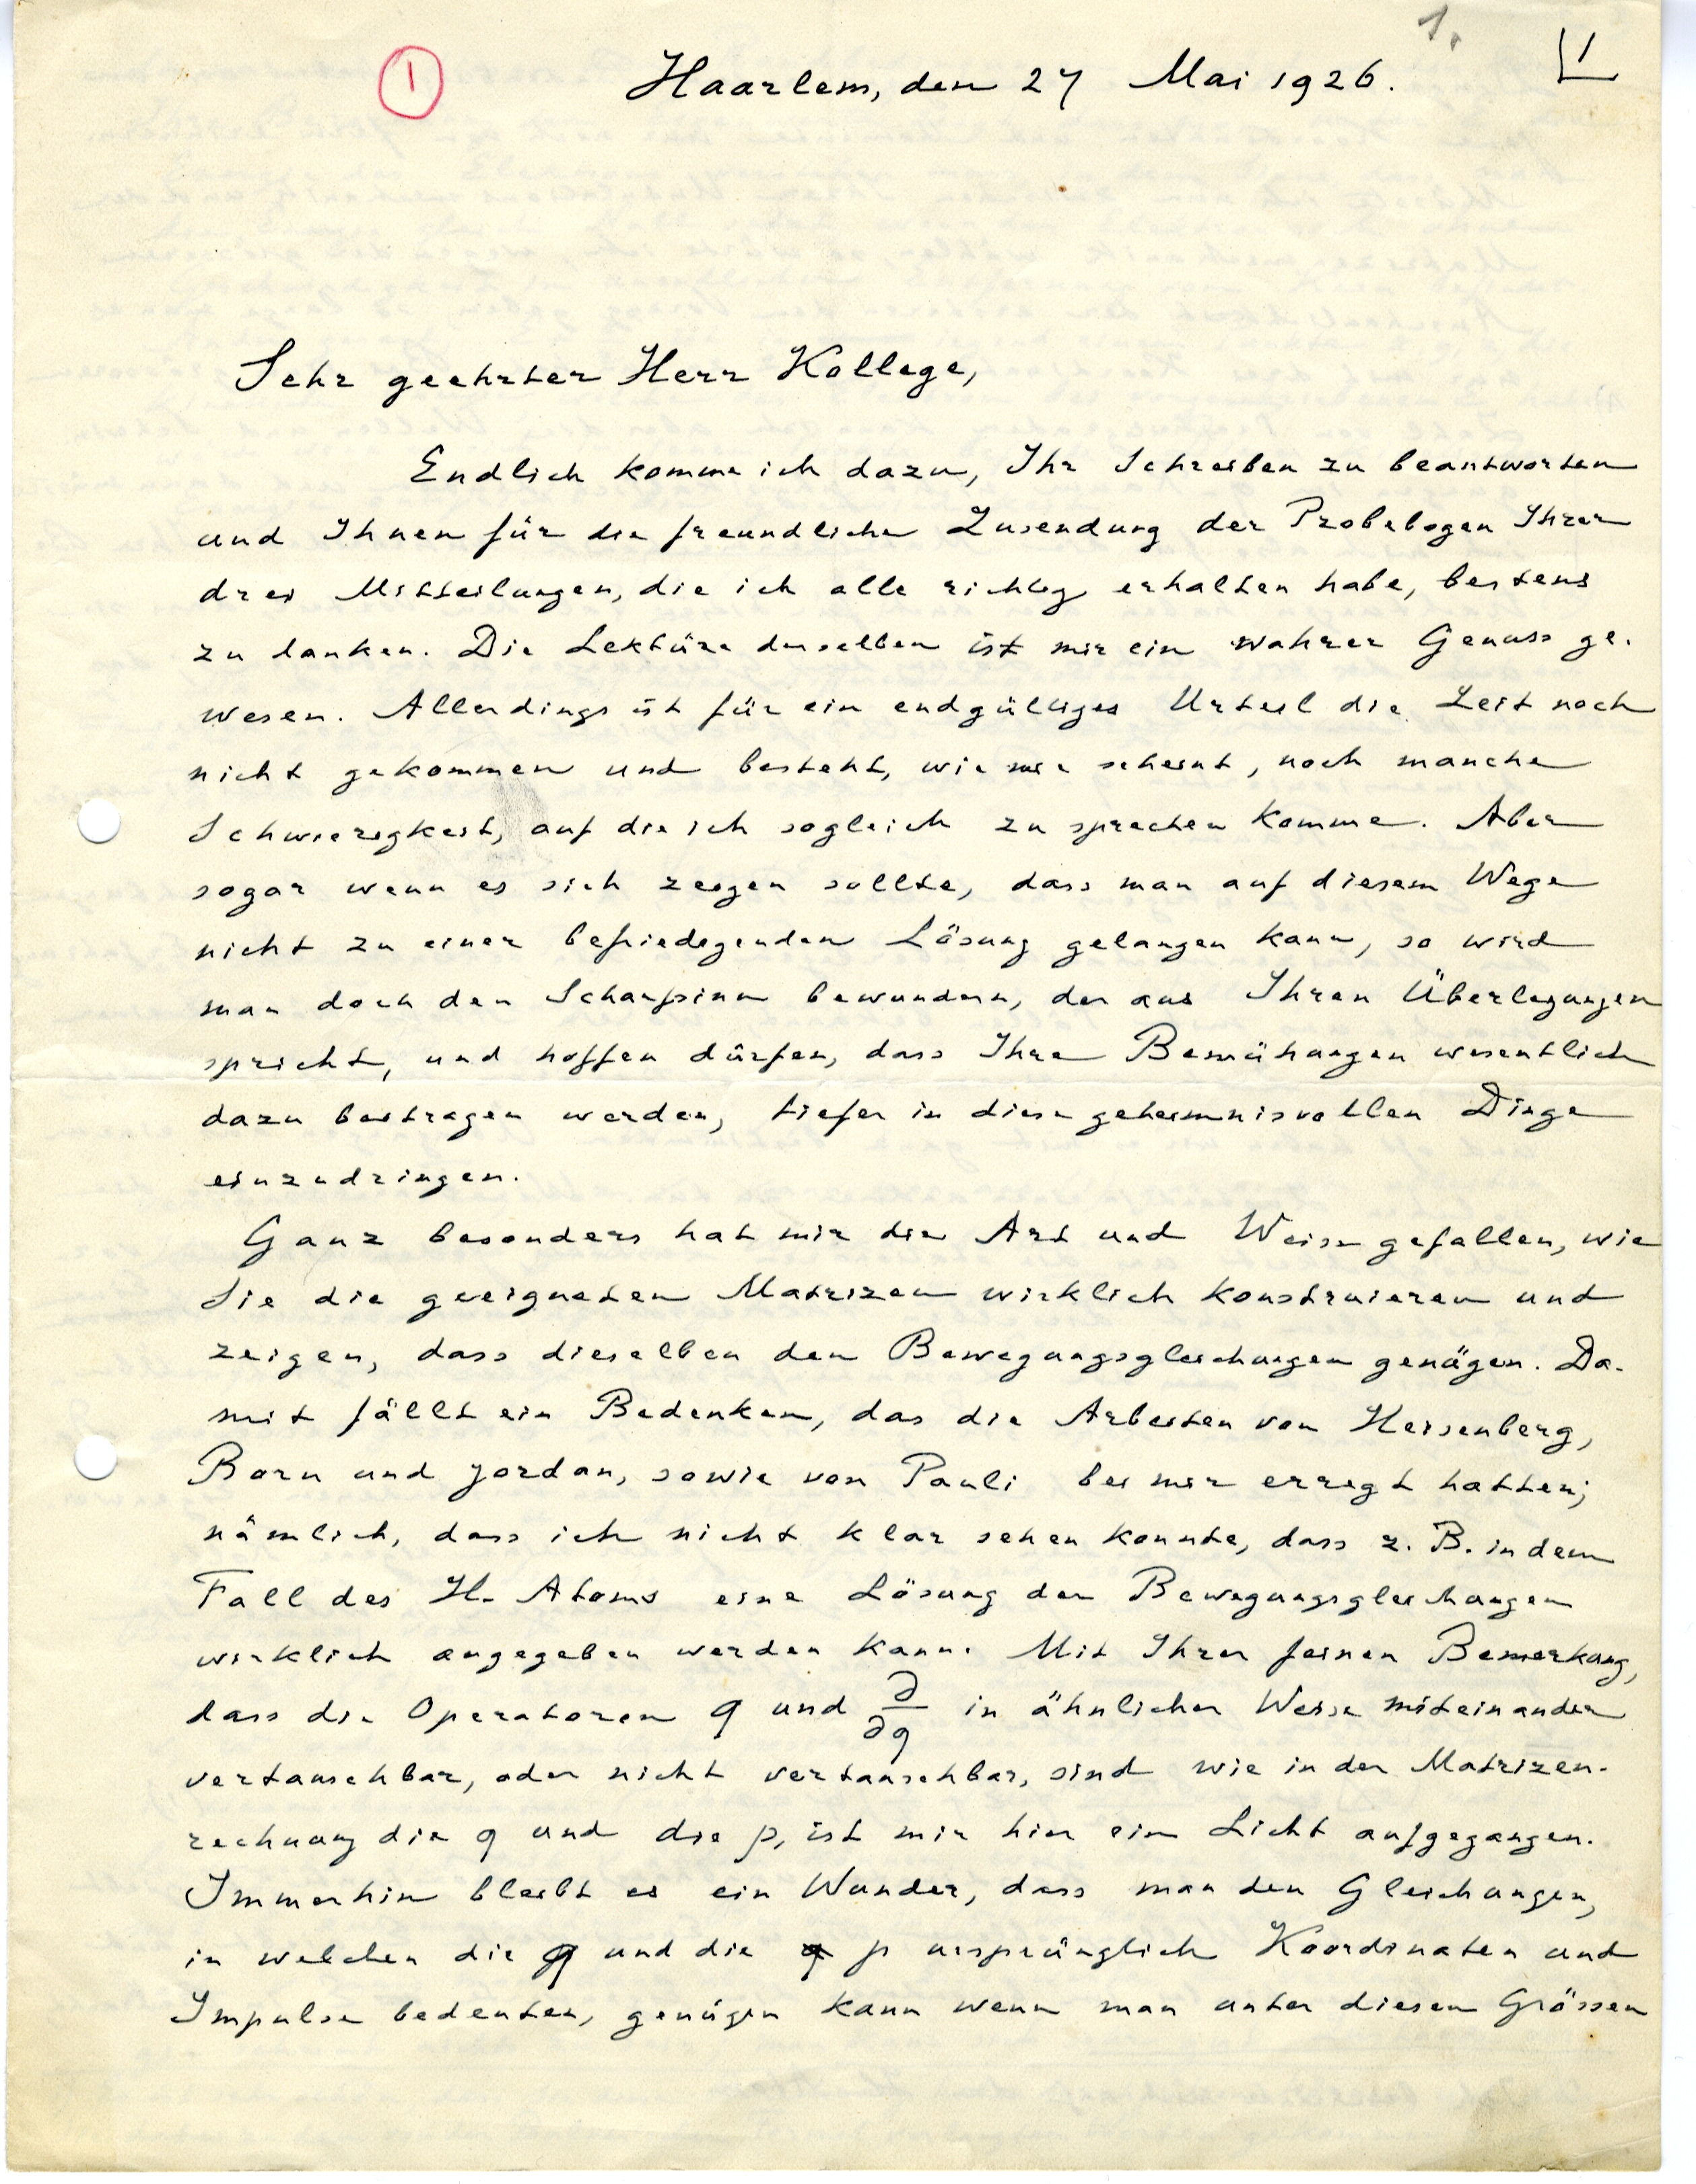 1.
1
1
Haarlem, den 27 Mai 1926.
Sehr geehrter Herr Kollege,
Endlich komme ich dazu, Ihr Schreiben zu beantworten
und Ihnen für die freundliche Zusendung der Probebogen Ihrer
drei Mitteilungen, die ich alle richtig erhalten habe, bestens
zu danken. Die Lektüre derselben ist mir ein wahrer Genuss ge-
wesen. Allerdings ist für ein endgültiges Urteil die Zeit noch
nicht gekommen und besteht, wie mir scheint, noch manche
Schwierigkeit, auf die ich sogleich zu sprechen komme. Aber
sogar wenn es sich zeigen sollte, dass man auf diesem Wege
nicht zu einer befriedigenden Lösung gelangen kann, so wird
man doch den Scharfsinn bewundern, der aus Ihren Überlegungen
spricht, und hoffen dürfen, dass Ihre Bemühungen wesentlich
dazu beitragen werden, tiefer in diese geheimnisvollen Dinge
einzudringen.
Ganz besonders hat mir die Art und Weise gefallen, wie
Sie die geeigneten Matrizen wirklich konstruieren und
zeigen, dass dieselben den Bewegungsgleichungen genügen. Da-
mit fällt ein Bedenken, das die Arbeiten von Heisenberg,
Born und Jordan, sowie von Pauli bei mir erregt hatten;
nämlich, dass ich nicht klar sehen konnte, dass z. B. in dem
Fall des H-Atoms eine Lösung der Bewegungsgleichungen
wirklich angegeben werden kann. Mit Ihrer feinen Bemerkung,
dass die Operatoren q und ∂/∂q in ähnlicher Weise miteinander
vertauschbar, oder nicht vertauschbar, sind wie in der Matrizen-
rechnung die q und die p, ist mir hier ein Licht aufgegangen.
Immerhin bleibt es ein Wunder, dass man den Gleichungen,
in welchen die q und die p ursprünglich Koordinaten und
Impulse bedeuten, genügen kann wenn man unter diesen Grössen